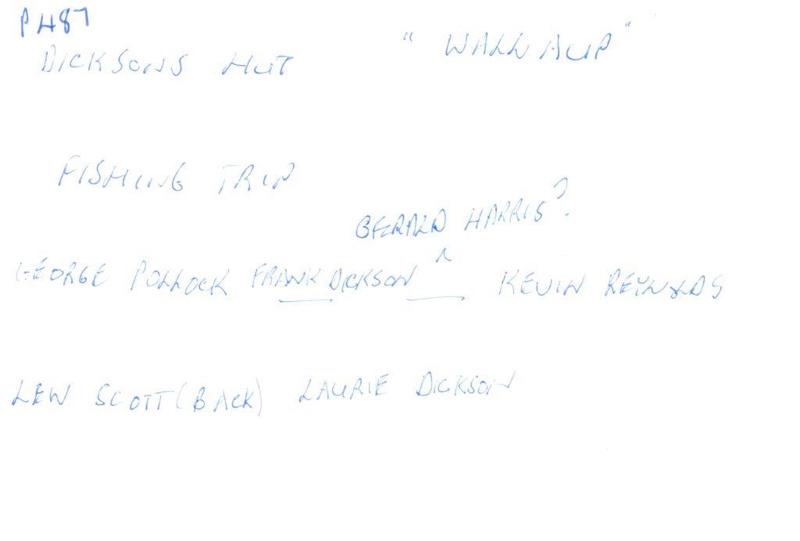 P487
DICKSONS HUT "WALLALIP"
FISHING TRIP
GERALD HARRIS?
GEORGE POLLOCK FRANK DICKSON ^ KEVIN REYNOLDS
LEW SCOTT (BACK) LAURIE DICKSON